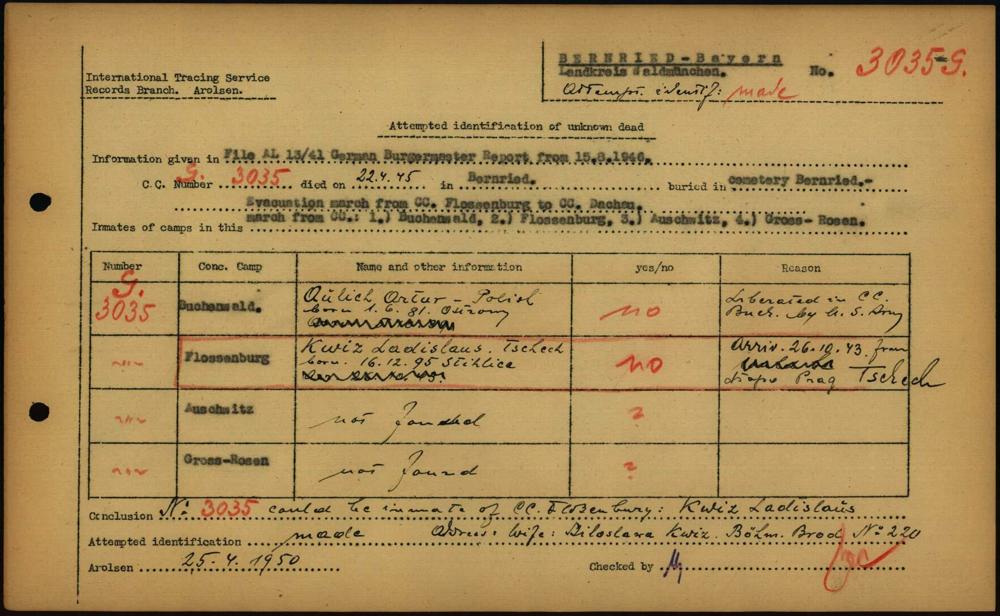 BERNRIED-Bayern
Landkreis Waldmünchen.
No. 3035 G.
Attempt. identif: made
International Tracing Service
Records Branch. Arolsen.
Attempted identification of unknown dead
Information given in File AL 13/41 German Burgermaster Report from 15.8.1946.
C.C. Number G. 3035 died on 22.4.45 in Bernried. buried in cemetery Bernried.-
Evacuation march from CC. Flossenburg to CC. Dachau.
Inmates of camps in this march from CC.: 1.) Buchenwald, 2.) Flossenburg, 3.) Auschwitz, 4.) Gross-Rosen.
Number Conc. Camp Name and other information yes/no Reason
G. 3035 Buchenwald. Aulich Artur - Polish no Liberated in CC.
born 1.6.81. Buch. by U.S. Army
-"- Flossenburg Kwiz Ladislaus. Tschech no Arriv. 26.10.43 from
born. 16.12.95
Prag Tschech
-"- Auschwitz not found ?
-"- Gross-Rosen not found ?
Conclusion No: 3035 could be inmate of CC. Flossenburg: Kwiz Ladislaus
Attempted identification made Adress: Wife: Kwiz. Böhm. Brod No 220
Arolsen 25.4.1950 Checked by